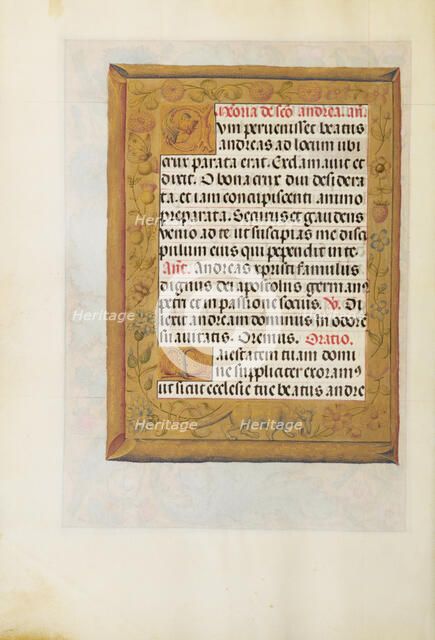 Memoria de sco andrea. añ.
Cum pervenisset beatus
andreas ad locum ubi
crux parata erat. Exclamavit et
dixit. O bona crux diu desidera
ta. et iam concupiscenti animo
preparata. Securus et gaudens
venio ad te ut suscipias me disci
pulum eius qui pependit in te
Añe. Andreas xpristi famulus
dignus dei apostolus germanꝰ
petri et in passione socius. ℣. Di
lexit andream dominus In odorē
suavitatis. Oremus. Oratio.
Maiestatem tuam domi
ne suppliciter exoramꝰ
ut sicut ecclesie tue beatus andre
Heritage
Heritage
Heritage
Heritage
Heritage